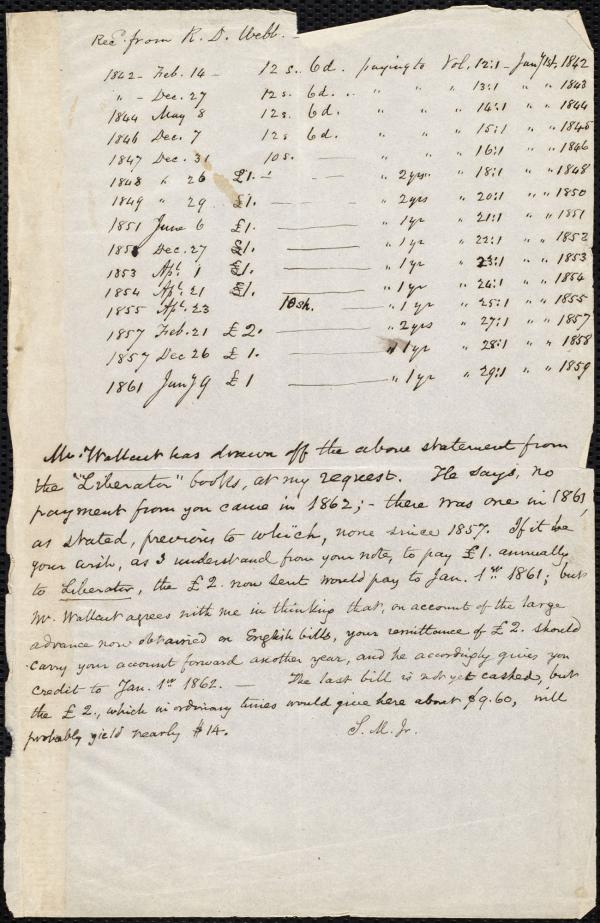 Rec'd from R. D. Webb. —
1842 - Feb. 14 — 12 s. 6d. paying to Vol. 12:1 - Jan'y 1st. 1842
" - Dec. 27 12 s. 6d. .. " " " 13:1 " " 1843
1844 May 8 12s. 6d. " " " 14:1 " " 1844
1846 Dec. 7 12s 6d. " " " 15:1 " " 1845
1847 Dec. 31 10s. — " " " 16:1 " " 1846
1848 " 26 £1. — — " 2 yrs " 18:1 " " 1848
1849 " 29 £1. — " 2 yrs " 20:1 " " 1850
1851 June 6 £1. — " 1 yr " 21:1 " " 1851
185 Dec. 27 £1. — " 1 yr " 22:1 " " 1852
1853 Apl. 1 £1. — " 1 yr " 23:1 " " 1853
1854 Apl. 21 £1. — " 1 yr " 24:1 " " 1854
1855 Apl. 23 10sh. — " 1 yr " 25:1 " " 1855
1857 Feb. 21 £2. — " 2 yrs " 27:1 " " 1857
1857 Dec 26 £1. — " 1 yr " 28:1 " " 1858
1861 Jan'y 9 £1 — " 1 yr " 29:1 " " 1859
Mr. Wallcut has drawn off the above statement from
the "Liberator" books, at my request. He says, no
payment from you came in 1862; - there was one in 1861,
as stated, previous to which, none since 1857. If it be
your wish, as I understand from your note, to pay £1. annually
to Liberator, the £2. now sent would pay to Jan. 1st 1861; but
Mr. Wallcut agrees with me in thinking that, on account of the large
advance now obtained on English bills, your remittance of £2. should
carry your account forward another year, and he accordingly gives you
credit to Jan. 1st 1862. — The last bill is not yet cashed, but
the £2., which in ordinary times would give here about $9.60, will
probably yield nearly $14. S. M. Jr.